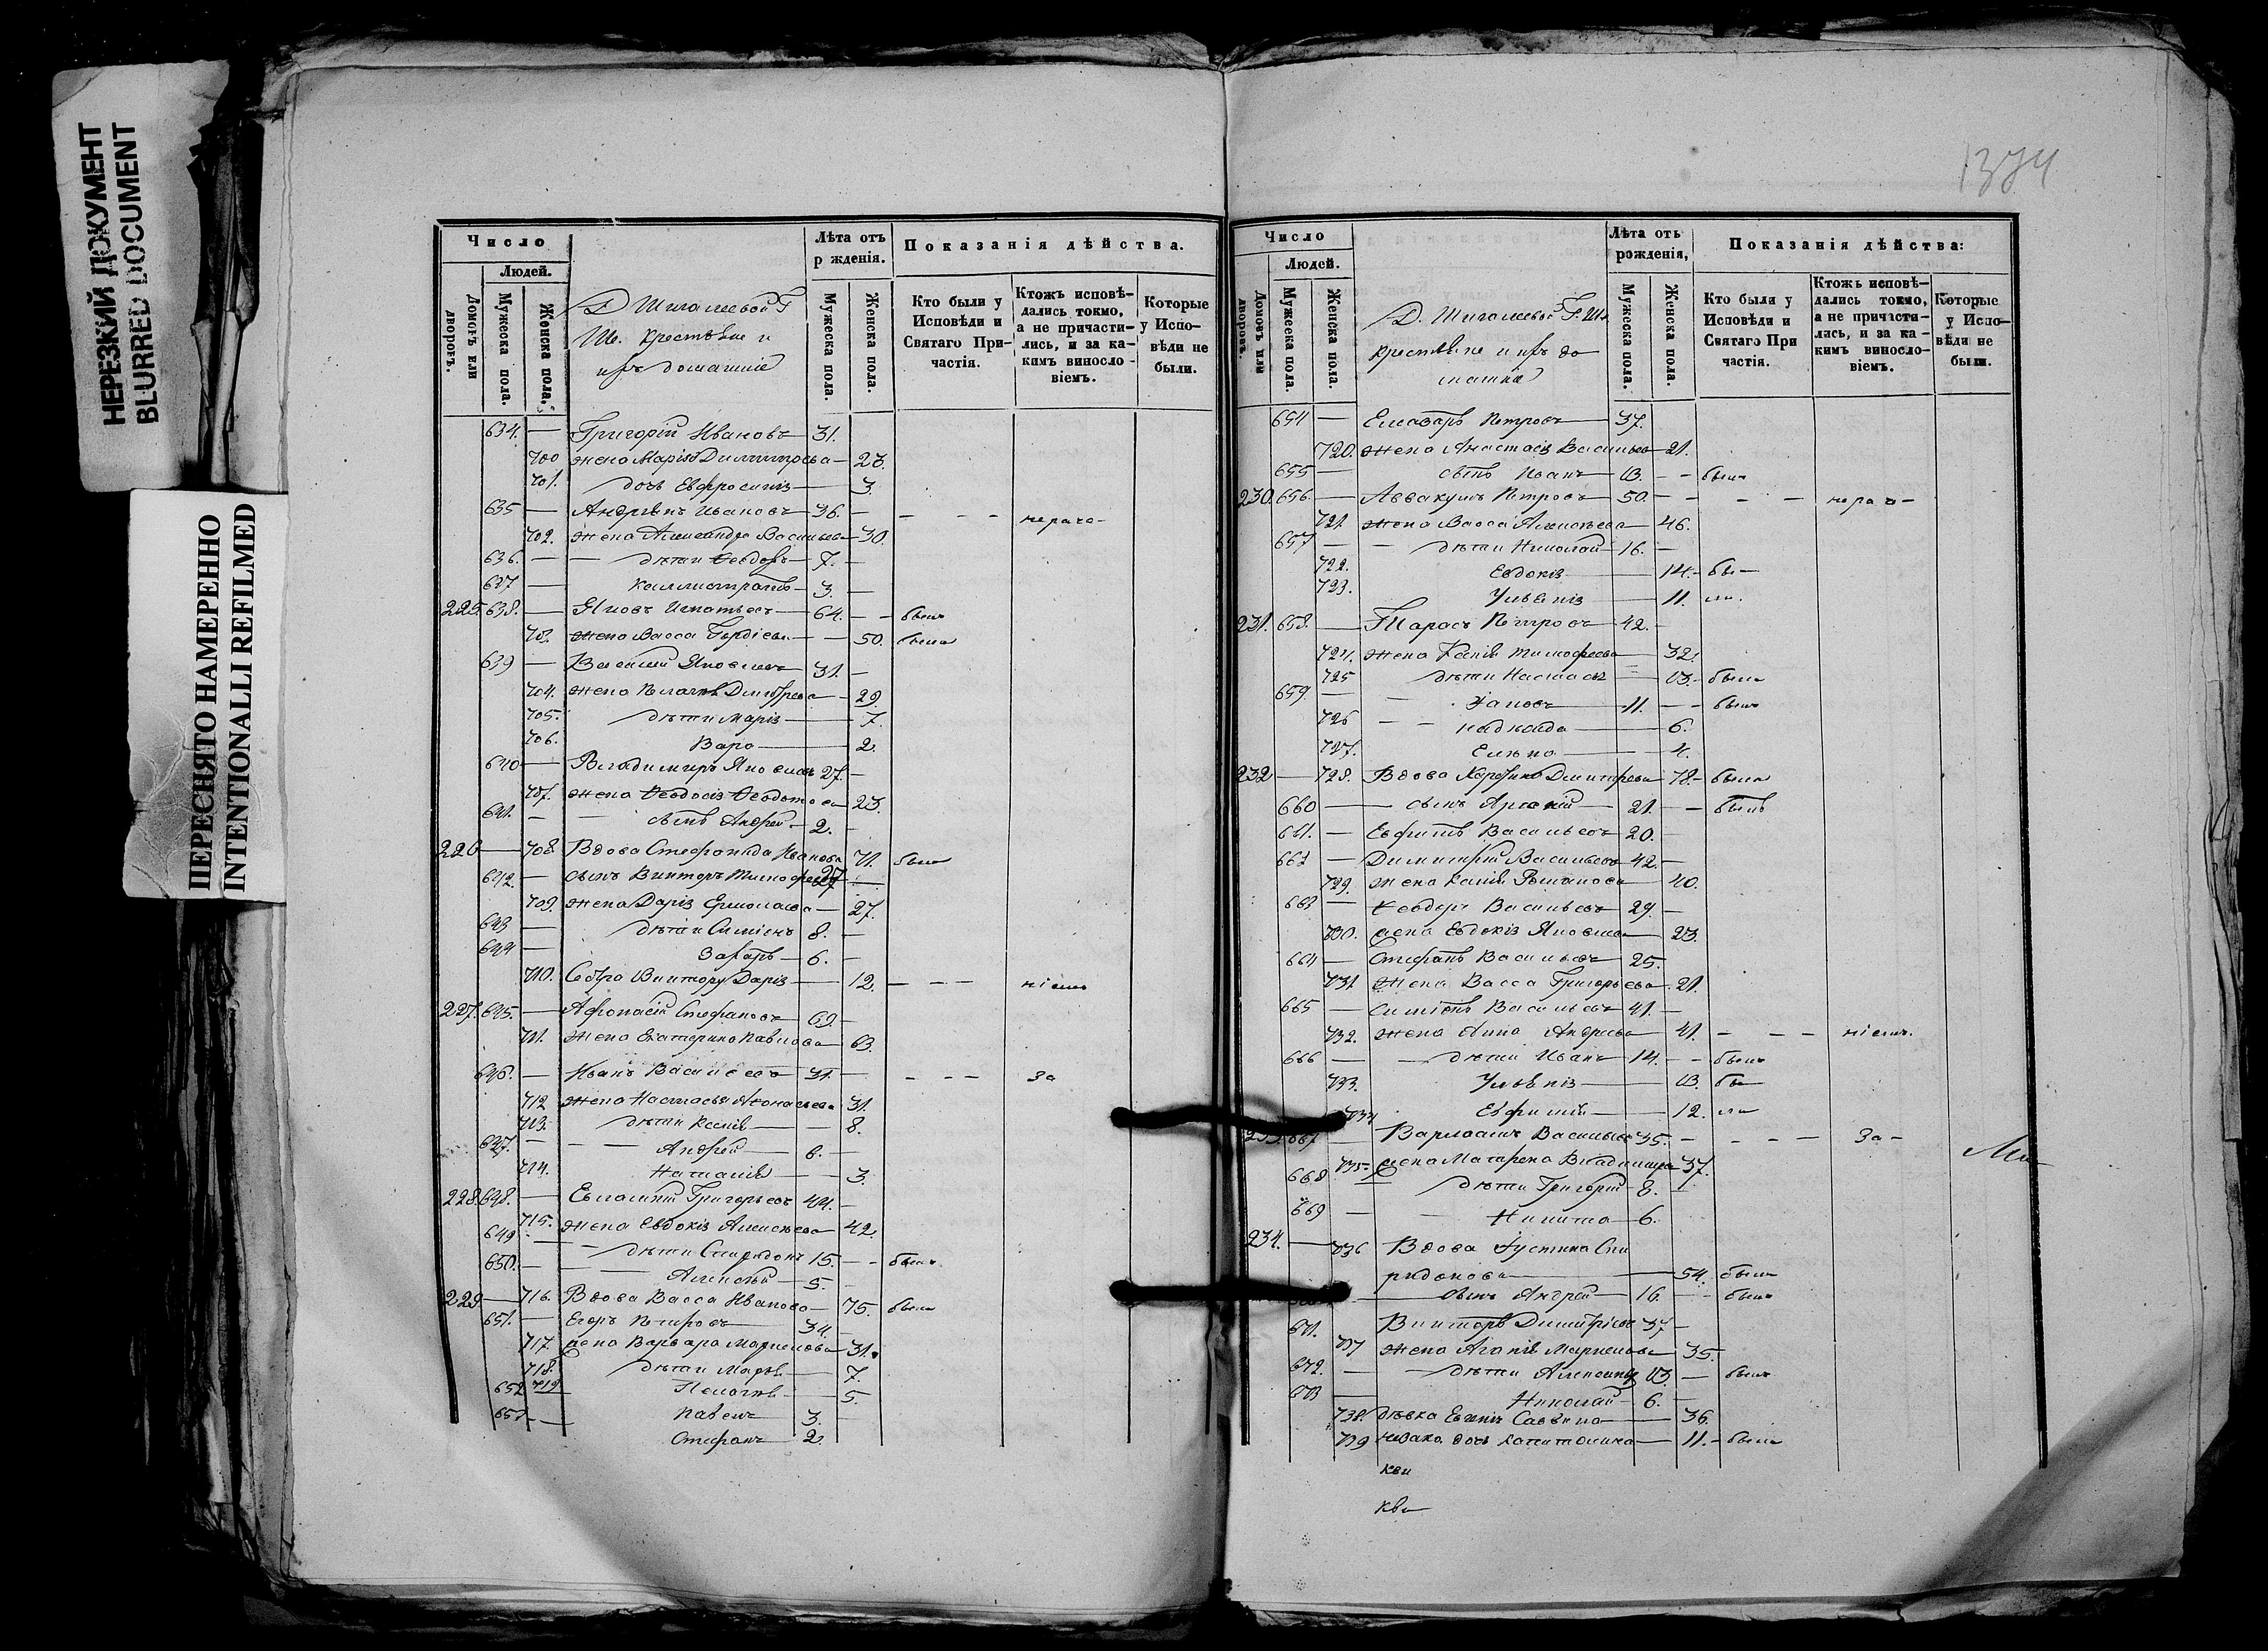 НЕРЕЗКИЙ ДОКУМЕНТ
BLURRED DOCUMENT
ПЕРЕСНЯТО НАМЕРЕННО
INTENTIONALLI REFILMED
Число
Людей.
Домовъ или дворовъ.
Мужеска пола.
Женска пола.
Крестьяне и
ихъ домашніе
Лѣта отъ
р жденія.
Мужеска пола.
Женска пола.
Показанія дѣйства.
Кто были у
Исповѣди и
Святаго При-
частія.
Ктожъ исповѣ-
дались токмо,
а не причасти-
лись, и за ка-
кимъ винosло-
віемъ.
Которые
у Испо-
вѣди не
были.
634. — Григорій Ивановъ — 31.
700 жена Марія Димитріева — 23.
701. дочь Евфросинія — 3.
635 — Андреянъ Ивановъ — 36. —
702. жена Александра Васильева — 30.
636. — дѣти Ѳеодоръ — 7. —
637 — Каллистратъ — 3. —
225 638. — Яковъ Игнатьевъ — 64. — былъ
703. жена Васса Гордіева — 50. была
639 — Василій Яковлевъ 31. —
704. жена Пелагія Дмитріева — 29.
705. дѣти Марія — 7.
706. Вара — 2.
640 — Владимиръ Яковлевъ 27. —
707. жена Ѳеодосія Ѳеодотова 23.
641. — сынъ Андрей — 2. —
226 — 708 Вдова Стефанида Иванова 71. была
642. — сынъ Викторъ Тимофеевъ 27 —
709. жена Дарія Ермолаева — 27.
643 — дѣти Симіонъ 8. —
644 — Захаръ — 6. —
710. Сестра Виктору Дарія — 12.
227. 645. — Афонасій Стефановъ 69. —
711. жена Екатерина Павлова 63.
646. — Иванъ Васильевъ 31. — за
712 жена Настасья Афонасьева 31.
713. дѣти Ксенія — 8.
647. — Андрей — 6. —
714. Наталія — 3.
228 648. — Евлампій Григорьевъ 44. —
715. жена Евдокія Алексѣева 42.
649 — дѣти Спиридонъ 15. — былъ
650. — Алексѣй — 5. —
229 — 716. Вдова Васса Иванова — 75. была
651. — Егоръ Петровъ 34. —
717. жена Варвара Маркелова 31.
718. дѣти Марья — 7.
652 719 Пелагія — 5.
653 — Павелъ 3. —
Стефанъ 2.
1374
Число
Людей.
Домовъ или дворовъ.
Мужеска пола.
Женска пола.
крестьяне и ихъ до
машніе
Лѣта отъ
рожденія,
Мужеска пола.
Женска пола.
Показанія дѣйства:
Кто были у
Исповѣди и
Святаго При
частія.
Ктожъ исповѣ-
дались токмо,
а не причасти-
лись, и за ка -
кимъ винosло-
віемъ.
Которые
у Испо-
вѣди не
были.
654 — Елеазаръ Петровъ — 37.
720. жена Анастасія Васильева 21.
655 — сынъ Иванъ — 13. — былъ
230. 656. — Аввакумъ Петровъ — 50. —
721. жена Васса Алексѣева — 46.
657 — дѣти Николай — 16. —
722. Евдокія — 14. — бы —
723. Ульянія — 11. ли.
231. 658. — Тарасъ Петровъ — 42. —
724. жена Ксенія Тимофеева 32.
725 дѣти Настасья — 13. — была
659. — Яковъ — 11. — былъ
726 Надежда — 6.
727. Елена — 4.
232 — 728. Вдова Дмитріева 78 — была
660 — сынъ Арсеній — 21. — былъ
661. — Евфимъ Васильевъ 20. —
662 — Димитрій Васильевъ 42. —
729. жена Ксенія Романова — 40.
663 — Ѳеодоръ Васильевъ 29. —
730. жена Евдокія Яковлева 23.
664 — Стефанъ Васильевъ 25.
731 жена Васса Григорьева 21.
665 — Симіонъ Васильевъ 41. —
732. жена Анна Андреева 41. —
666 — дѣти Иванъ 14. — былъ
733. Ульянія — 13. бы
734 Евфимія — 12. ли
233. 667 — Варлаамъ Васильевъ 35. — за —
735. жена Матрена Владимира 37.
668 — дѣти Григорій 8. —
669 — Никита — 6.
234. — 736 Вдова Устинa Спи
ридонова — 54. была
сынъ Андрей — 16. — былъ
671. Викторъ Димитріевъ 37 —
737 жена Агапія Маркелова 35.
672. — дѣти Александръ 13. — былъ
673 — Николай — 6. —
738. дѣвка Евгенія Саввина 36.
739 дочь Капитолина — 11. — была